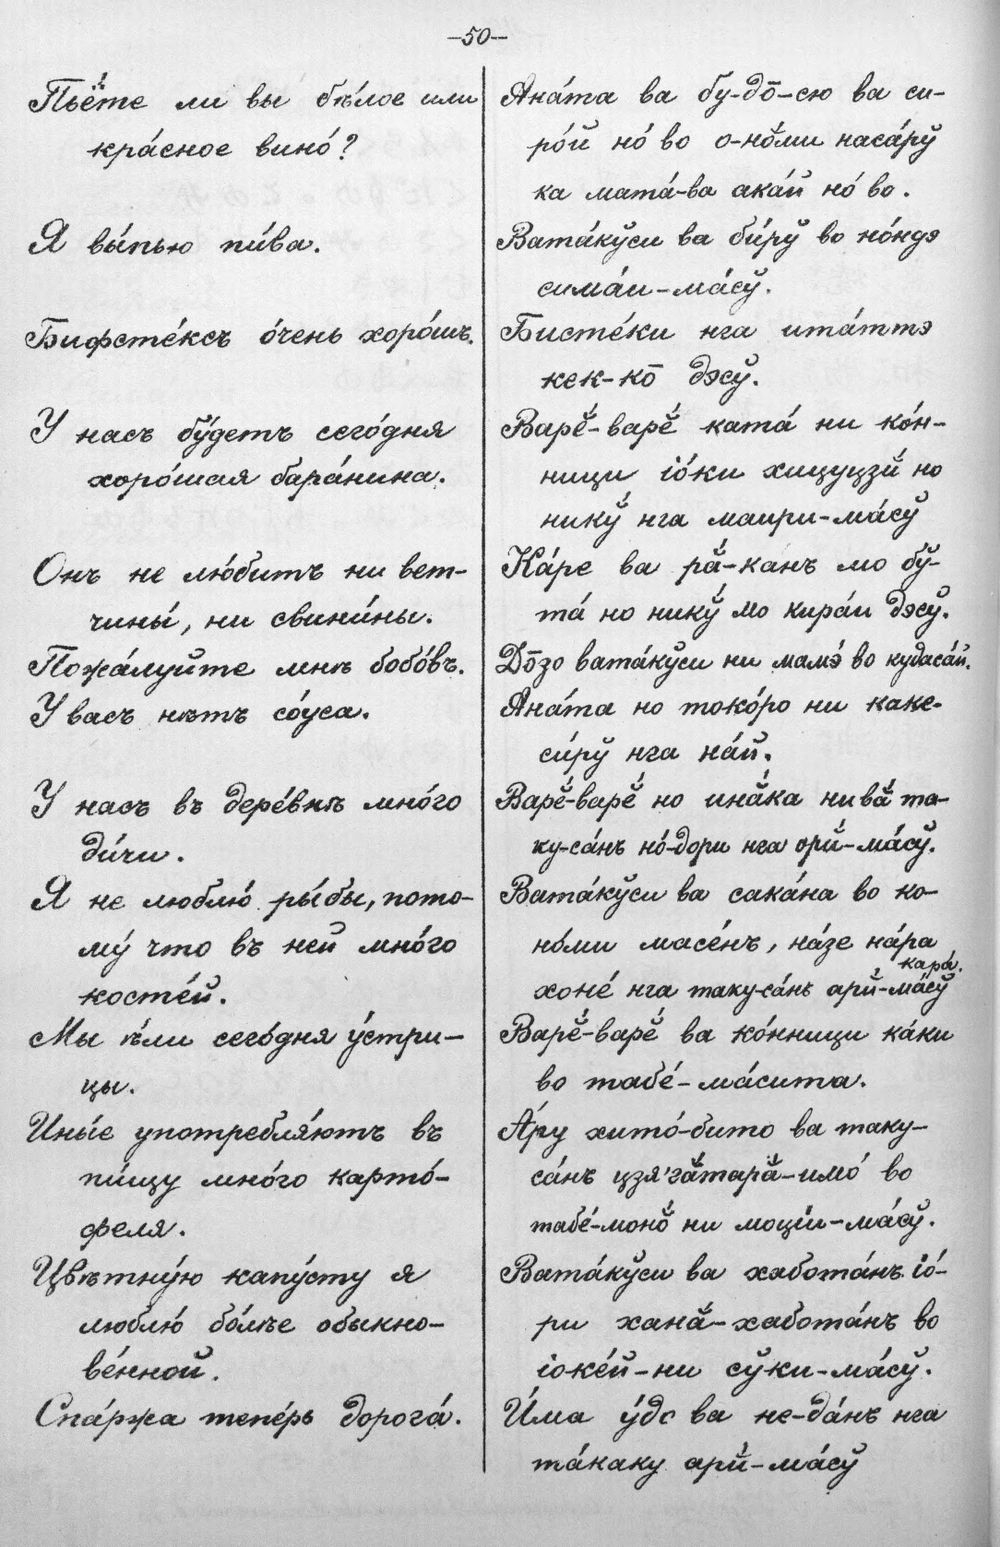 —50—
Пьёте ли вы бѣлое или
кра́сное вино́?
Я вы́пью пи́ва.
Бифсте́ксъ о́чень хоро́шъ.
У насъ бу́детъ сего́дня
хоро́шая бара́нина.
Онъ не лю́битъ ни вет-
чины́, ни свини́ны.
Пожа́луйте мнѣ бобо́въ.
У васъ нѣтъ со́уса.
У насъ въ дере́внѣ мно́го
ди́чи.
Я не люблю́ ры́бы, пото-
му́ что въ ней мно́го
косте́й.
Мы ѣ́ли сего́дня у́стри-
цы.
Ины́е употребля́ютъ въ
пи́щу мно́го карто́-
феля.
Цвѣтну́ю капу́сту я
люблю́ бо́лѣе обыкно-
ве́нной.
Спа́ржа тепе́рь дорога́.
Ана́та ва бу-до̄-сю ва си-
ро́й но́ во о-но̆ми наса́рў
ка мата́-ва ака́й но́ во.
Вата́кўси ва би́рў во но́ндэ
сима́и-ма́сў.
Бисте́ки нга ита́ттэ
кек-ко̄ дэсў.
Варӗ́-варӗ́ ката́ ни ко́н-
ници іо́ки хицуцзй́ но
никў́ нга маири-ма́сў
Ка́ре ва рӑ́-канъ мо бў-
та́ но никў́ мо кира́и дэсў.
До̄зо вата́кўси ни мамэ́ во кудаса́й.
Ана́та но токо́ро ни каке-
си́рў нга на́й.
Варӗ́-варӗ́ но инӑ́ка нивӑ́ та-
ку-са́нъ но́-дори нга орй́-ма́сў.
Вата́кўси ва сака́на во ко-
но́ми масе́нъ, на́зе на́ра
кара́.
хоне́ нга таку-са́нъ арй́-ма́сў
Варӗ́-варӗ́ ва ко́нници ка́ки
во табе́-ма́сита.
А́ру хито́-бито ва таку-
са́нъ цзя'гӑтарӑ-имо́ во
табе́-моно̆́ ни моцій-ма́сў.
Вата́кўси ва хаботáнъ іо́-
ри ханӑ́-хабота́нъ во
іоке́й-ни сўки-ма́сў.
И́ма у́до ва не-да́нъ нга
та́каку арй́-ма́сў